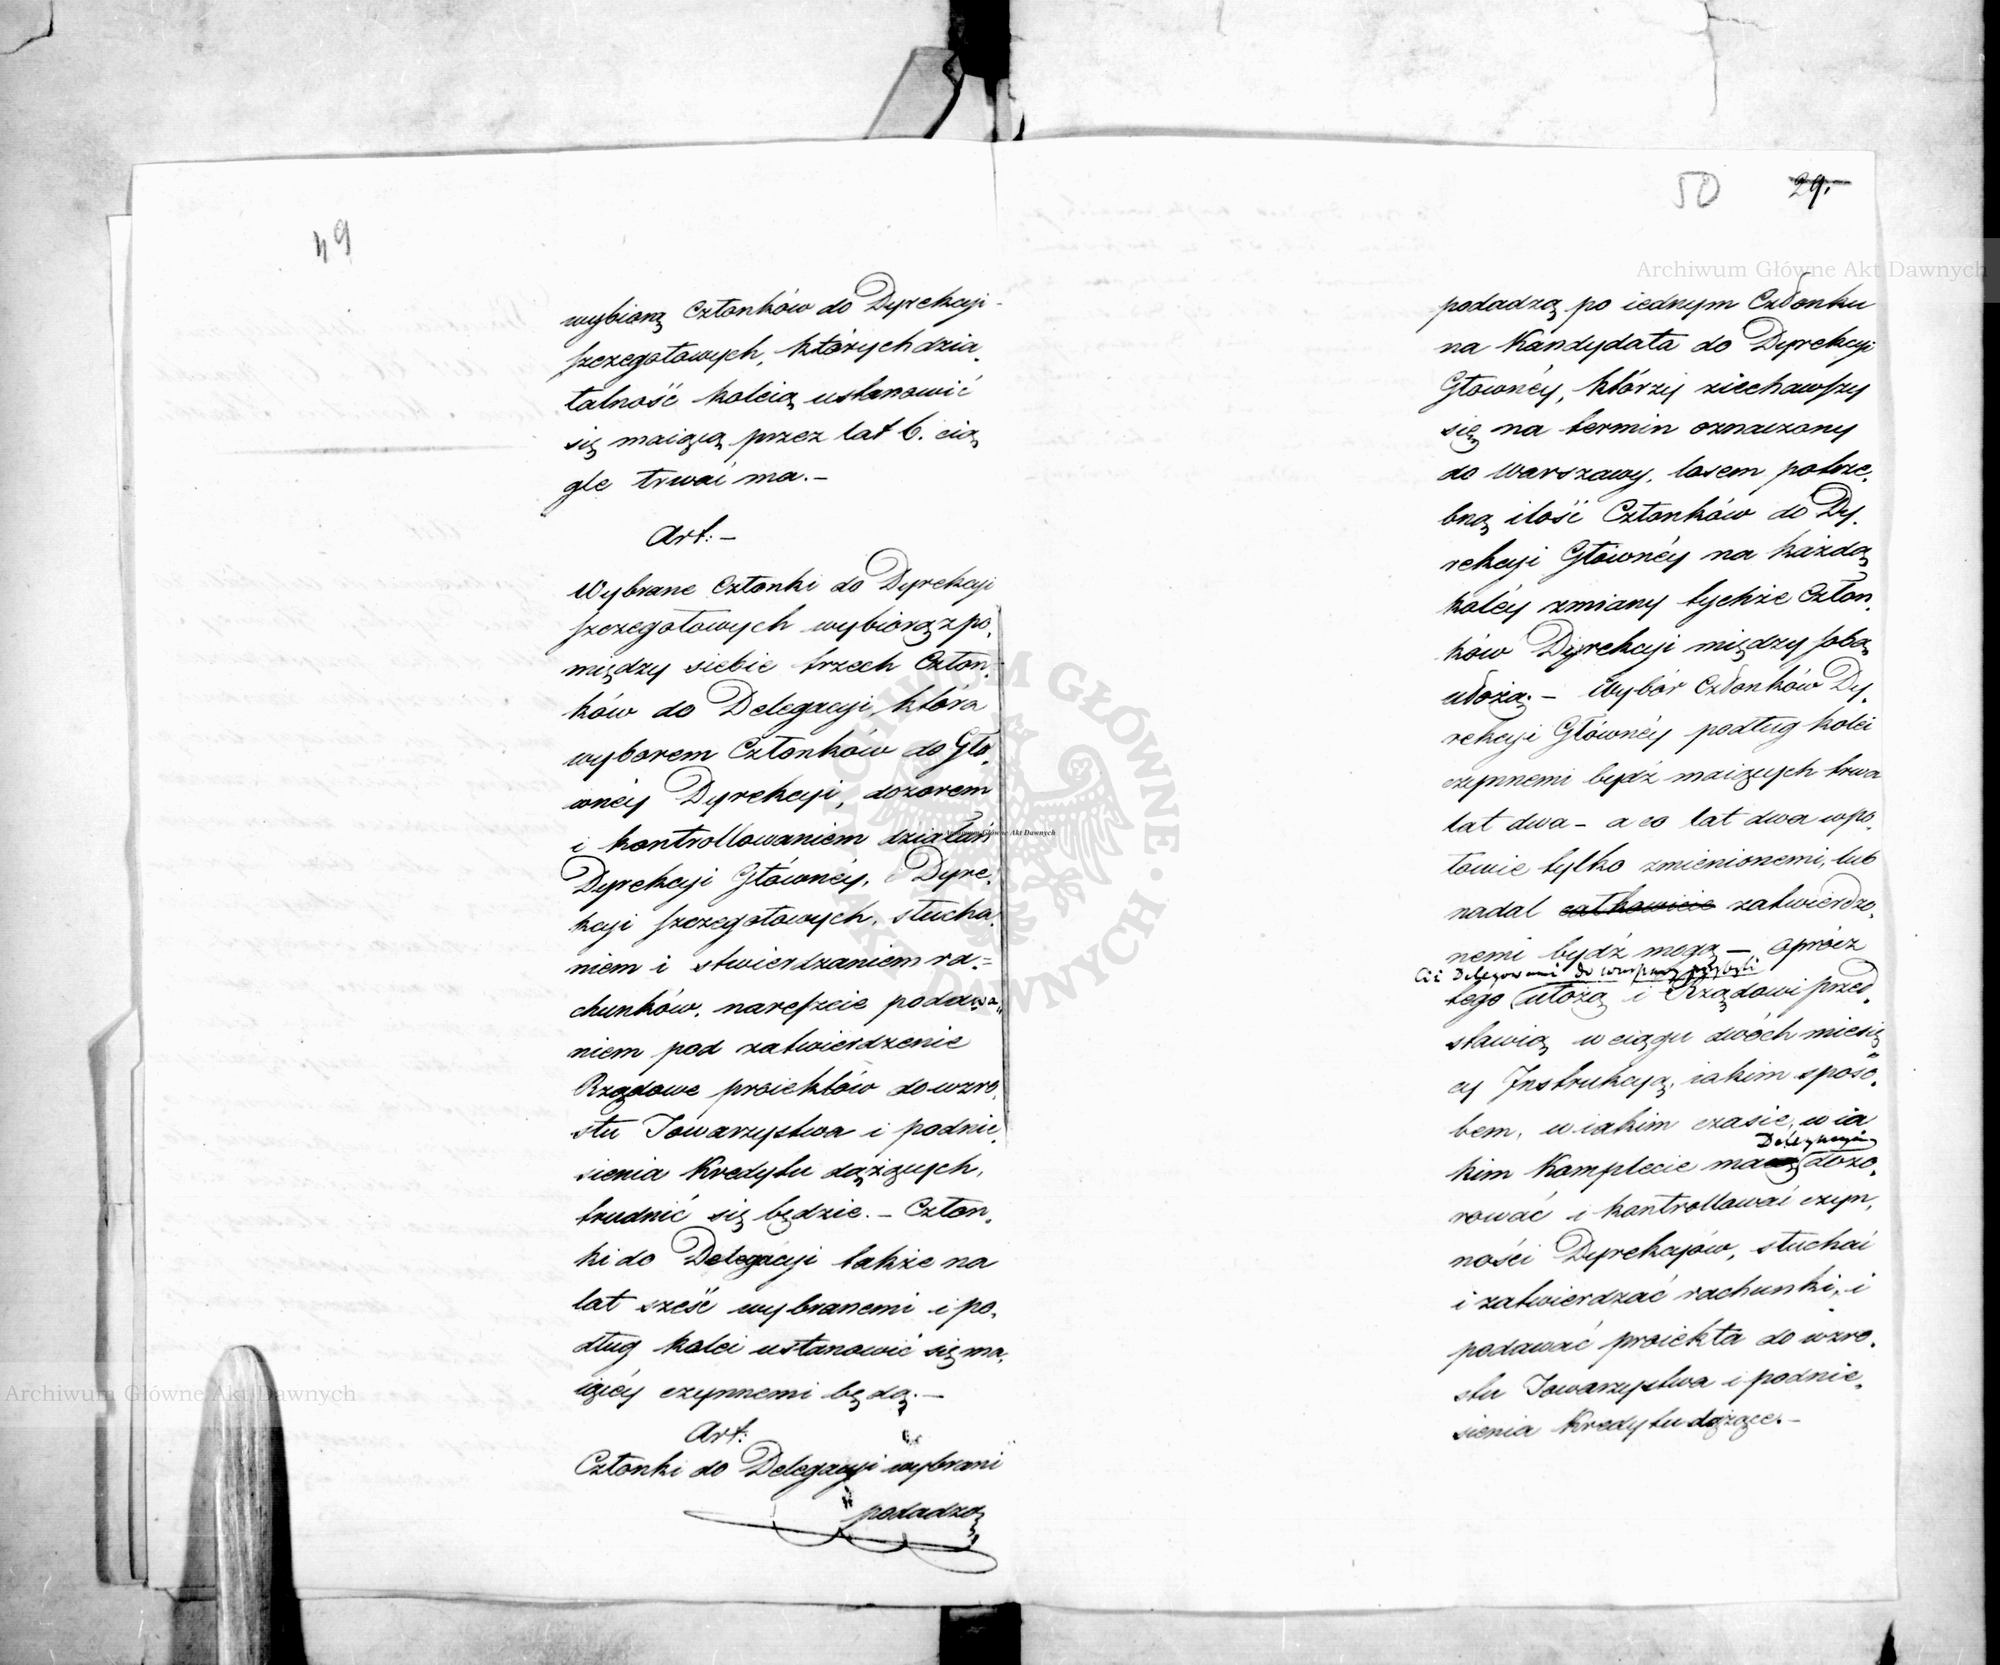 49
wybiorą Członków do Dyrekcyi
szczegołowych, których dzia,
łalność koleią ustanowić
się maiącą przez lat 6. cią,
gle trwać ma.—
Art:—
Wybrane Członki do Dyrekcyi
szczegołowych wybiorą z po,
między siebie trzech Człon,
ków do Delegacyi, która
wyborem Członków do Głó,
wnéy Dyrekcyi, dozorem
i kontrollowaniem działań
Dyrekcyi Głównéy, Dyre,
kcyi szczegołowych, słucha,
niem i stwierdzaniem ra=
chunków, nareszcie podawa,,
niem pod zatwierdzenie
Rządowe proiektów do wzro,
stu Towarzystwa i podnie,
sienia Kredytu dążących,
trudnić się będzie.— Człon,
ki do Delegacyi także na
lat sześć wybranemi i po,
dług kolei ustanowić się ma,
iącéy czynnemi będą.—
Art:
Członki do Delegacyi wybrani
podadzą
50 29.
podadzą po iednym Członku
na Kandydata do Dyrekcyi
Głównéy, którzy ziechawszy
się na termin oznaczony
do Warszawy, losem potrze,
bną ilość Członków do Dy,
rekcyi Głównéy na każdą
koléy zmiany tychże Człon,
ków Dyrekcyi między sobą
ułożą.— Wybór Członków Dy,
rekcyi Głównéy podług kolei
czynnemi bydź maiących trwa
lat dwa — a co lat dwa w po,
łowie tylko zmienionemi, lub
nadal całkowicie zatwierdzo,
nemi bydź mogą — oprócz
Ciż Delegowani do Warszawy przybyli
tego ułożą i Rządowi przed,
stawią w ciągu dwóch miesię
cy Instrukcyą, iakim sposo,
bem, w iakim czasie, w ia
Delegacyia
kim Komplecie ma dozo,
rować i kontrollować czyn,
ności Dyrekcyów, słuchać
i zatwierdzać rachunki, i
podawać proiekta do wzro,
stu Towarzystwa i podnie,
sienia Kredytu dążące.—
Archiwum Główne Akt Dawnych
Archiwum Główne Akt Dawnych
Archiwum Główne Akt Dawnych
ARCHIWUM GŁÓWNE AKT DAWNYCH